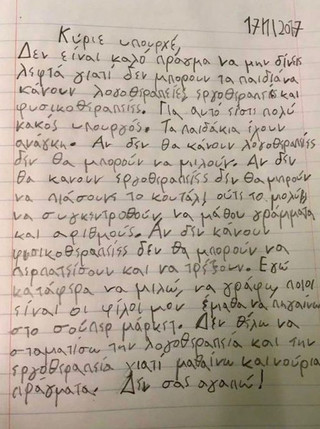 17/1/2017
Κύριε υπουργέ,
Δεν είναι καλό πράγμα να μην δίνεις
λεφτά γιατί δεν μπορουν τα παιδιά να
κάνουν λογοθεραπείες, εργοθεραπείες και
φυσικοθεραπείες. Για αυτό είστε πολύ
κακός υπουργός. Τα παιδάκια έχουν
ανάγκη. Αν δεν θα κάνουν λογοθεραπείες
δεν θα μπορούν να μιλούν. Αν δεν
θα κανουν εργοθεραπείες δεν θα μπορούν
να πιάσουνε το κουτάλι, ούτε το μολύβι
να συγκεντροθούν να μάθου γράμματα
και αριθμούς. Αν δεν κάνουν
φυσικοθεραπείες δεν θα μπορούν να
περπατείσουν και να τρέξουν. Εγώ
κατάφερα να μιλώ, να γράφω, ποιοι
είναι οι φίλοι μου έμαθα να πηγαίνω
στο σούπερ μάρκετ. Δεν θέλω να
σταματίσω την λογοθεραπεία και την
εργοθεραπεία γιατι μαθαίνω καινούρια
πραγματα. Δεν σας αγαπώ!